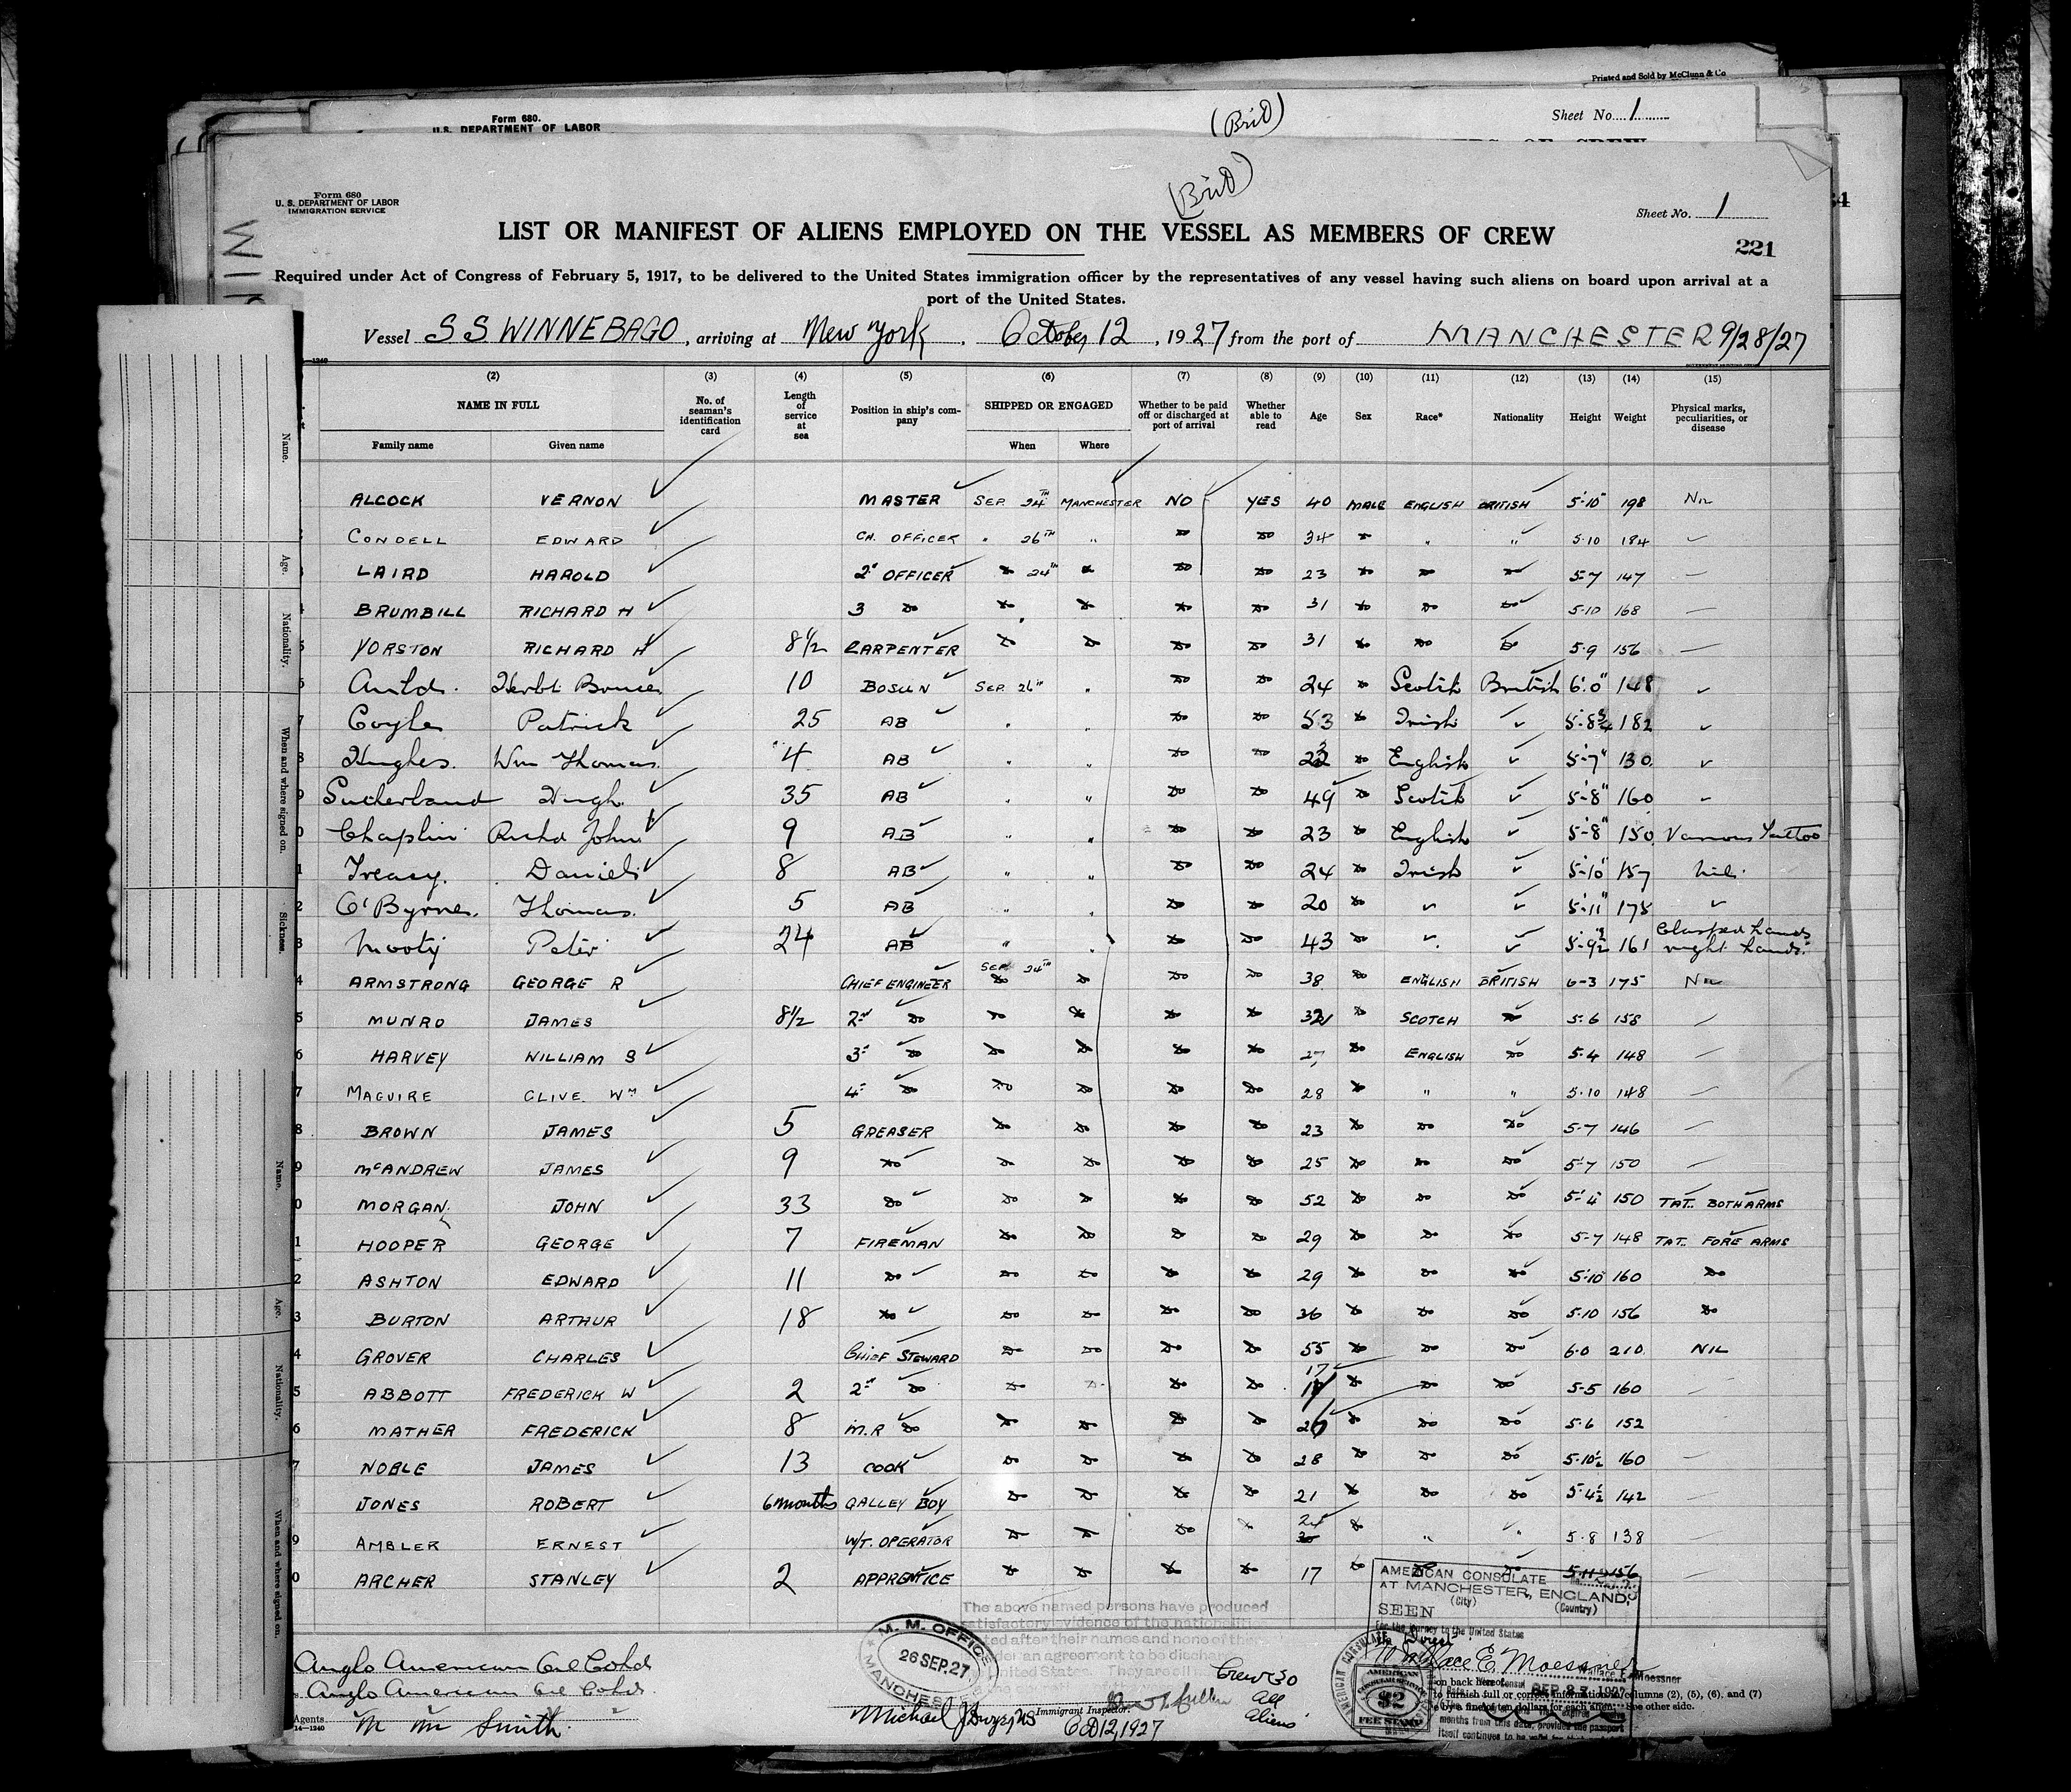 Printed and Sold by McClunn & Co
Form 680.
U. S. DEPARTMENT OF LABOR
(Brit)
Sheet No. 1
(Brit)
Form 680
U. S. DEPARTMENT OF LABOR
IMMIGRATION SERVICE
Sheet No. 1
LIST OR MANIFEST OF ALIENS EMPLOYED ON THE VESSEL AS MEMBERS OF CREW
221
Required under Act of Congress of February 5, 1917, to be delivered to the United States immigration officer by the representatives of any vessel having such aliens on board upon arrival at a
port of the United States.
Vessel S S WINNEBAGO, arriving at New York, October 12, 1927 from the port of MANCHESTER 9/28/27
(2) (3) (4) (5) (6) (7) (8) (9) (10) (11) (12) (13) (14) (15)
NAME IN FULL No. of seaman's identification card Length of service at sea Position in ship's company SHIPPED OR ENGAGED Whether to be paid off or discharged at port of arrival Whether able to read Age Sex Race* Nationality Height Weight Physical marks, peculiarities, or disease
Family name Given name When Where
ALCOCK VERNON MASTER SEP. 24TH MANCHESTER NO YES 40 MALE ENGLISH BRITISH 5'10" 198 NIL
CONDELL EDWARD CH. OFFICER " 26TH " do do 34 do " " 5-10 184
LAIRD HAROLD 2d OFFICER do 24th do do do 23 do do do 5-7 147 —
BRUMBILL RICHARD H 3 do do do do do 31 do do do 5-10 168 —
YORSTON RICHARD H 8 1/2 CARPENTER do do do do 31 do do do 5-9 156 —
Auld. Herbt Bruce 10 BOSUN SEP. 26th " do do 24 do Scotch British 6'0" 148
Coyle Patrick 25 AB " " do do 53 do Irish 5-8 3/4 182
Hughes. Wm Thomas. 4 AB " " do do do English 5-7" 130
Sutherland Hugh 35 AB " " do do 49 do Scotch 5-8" 160
Chaplin Richd John 9 AB " " do do 23 do English 5-8" 150 Various Tattoo
Treacy. Daniel 8 AB " " do do 24 do Irish 5-10" 157 Nil.
O'Byrne. Thomas. 5 AB " " do do 20 do 5-11" 175
Mooty Peter 24 AB " " do do 43 do 5-9 1/2 161 Clasped hands right hand.
ARMSTRONG GEORGE R CHIEF ENGINEER SEP 24TH do do do do 38 do ENGLISH BRITISH 6-3 175 NIL
MUNRO JAMES 8 1/2 2nd do do do do do 32 do SCOTCH do 5-6 158
HARVEY WILLIAM S 3d do do do do do 27 do ENGLISH do 5-4 148
MAGUIRE CLIVE WM 4 do do do do do 28 do " " 5-10 148
BROWN JAMES 5 GREASER do do do do 23 do do do 5-7 146
McANDREW JAMES 9 do do do do do 25 do do do 5-7 150
MORGAN JOHN 33 do do do do do 52 do do do 5-4 150 TAT. BOTH ARMS
HOOPER GEORGE 7 FIREMAN do do do do 29 do do do 5-7 148 TAT. FORE ARMS
ASHTON EDWARD 11 do do do do do 29 do do do 5-10 160 do
BURTON ARTHUR 18 do do do do do 36 do do do 5-10 156 do
GROVER CHARLES CHIEF STEWARD do do do do 55 do do do 6-0 210 NIL
ABBOTT FREDERICK W 2 2nd do do do do do 17 do do do 5-5 160
MATHER FREDERICK 8 M.R do do do do do 26 do do do 5-6 152
NOBLE JAMES 13 COOK do do do do 28 do do do 5-10 1/2 160
JONES ROBERT 6 months GALLEY BOY do do do do 21 do do do 5-4 1/2 142
AMBLER ERNEST W/T. OPERATOR do do do 24 do " " 5-8 138
ARCHER STANLEY 2 APPRENTICE do do do do 17 do do do 5-11 156
The above named persons have produced
satisfactory evidence of the nationality
M. M. OFFICE
26 SEP. 27
MANCHESTER
AMERICAN CONSULATE
AT MANCHESTER, ENGLAND
(City) (Country)
SEEN
For the journey to the United States
Wallace E. Moessner
Wallace E. Moessner
AMERICAN
$2
FEE STAMP
SEP 27 1927
Anglo American Oil Co Ltd
Anglo American Oil Co Ltd.
Agents
14—1240
M Mc Smith.
Crew 30
All
Aliens
Immigrant Inspector.
Oct 12, 1927
on back hereof.
to furnish full or correct information in columns (2), (5), (6), and (7)
by a fine of ten dollars for each alien. See other side.
months from this date, provided the passport
itself continues to be valid for that
Name.
Age.
Nationality.
When and where signed on.
Sickness.
Name.
Age.
Nationality.
When and where signed on.